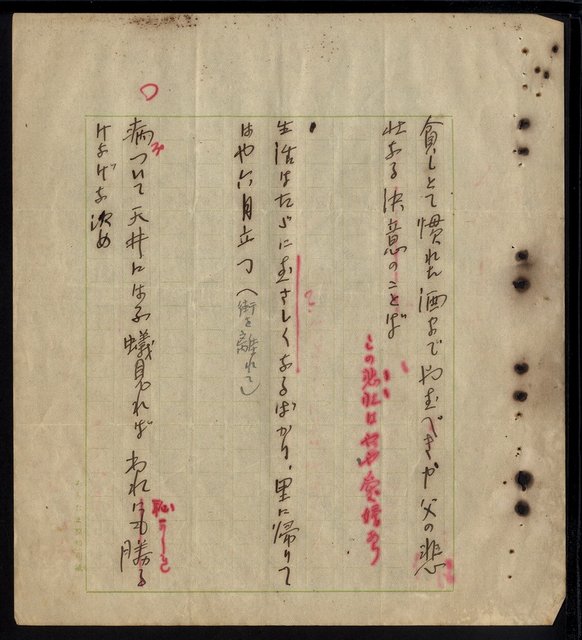 貧しとて慣れた酒までやむべきか父の悲
壮なる決意のことば
この悲壮はやや愛憎あり
生活はただにまさしくあるばかり、里に帰りて
はや六月立つ(街を離れて)
病みついて天井にはふ蟻見ればわれにも勝る
けなげな決め